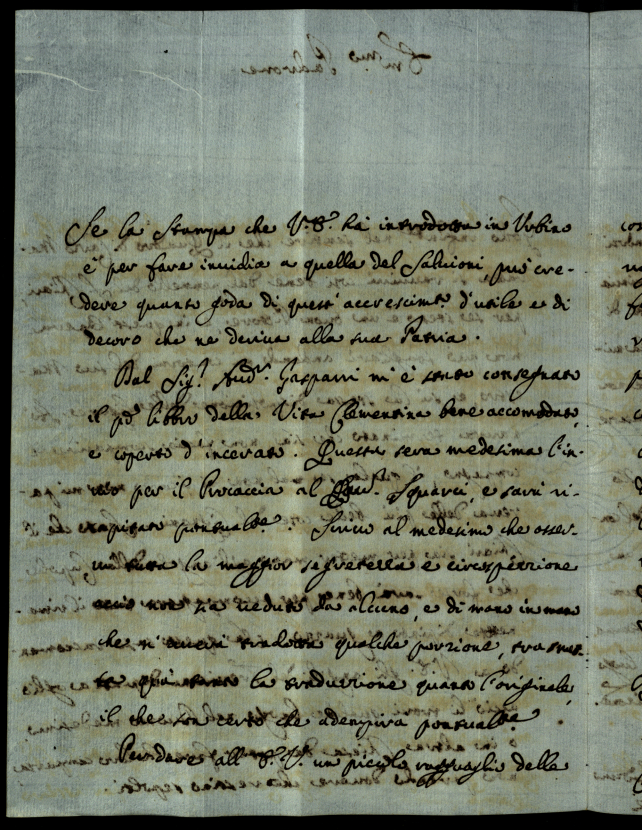 Em.mo Padrone
Se la Stampa che V.S. ha introdotta in Urbino
è per fare invidia a quella del Salvioni, può cre-
dere quanto goda di quest' accrescim.to d'utile e di
decoro che ne deriva alla sua Patria.
Dal Sig.r Aud.r Gasparri mi è stato consegnato
il pd.o libbro della Vita Clementina bene accomodato,
e coperto d'incerato. Questa sera medesima l'in-
vio per il Procaccia al Squarci, e sarà ri-
capitato pontualm.te. Scrivo al medesimo che osser-
vi tutta la maggior segretezza e circospezzione
acciò non sia veduto da alcuno, e di mano in mano
che n'averà tradotta qualche porzione, trasmet-
ta quà tanto la traduzzione quanto l'originale,
il che son certo che adempirà pontualm.te
Per dare all' S.V. un piccolo ragguaglio delle